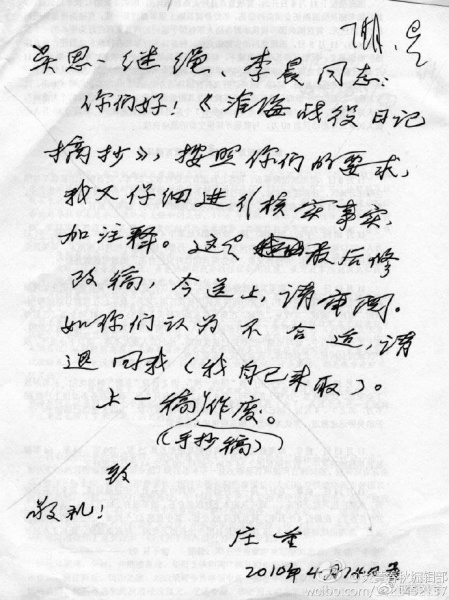 吴思、继绳、李晨同志：
你们好！《淮海战役日记
摘抄》，按照你们的要求，
我又仔细进行核实事实，
加注释。这是最后修
改稿，今送上，请审阅。
如你们认为不合适，请
退回我（我自己来取）。
上一稿作废。
（手抄稿）
致
敬礼！
庄重
2010年4月14日
炎黄春秋编辑部